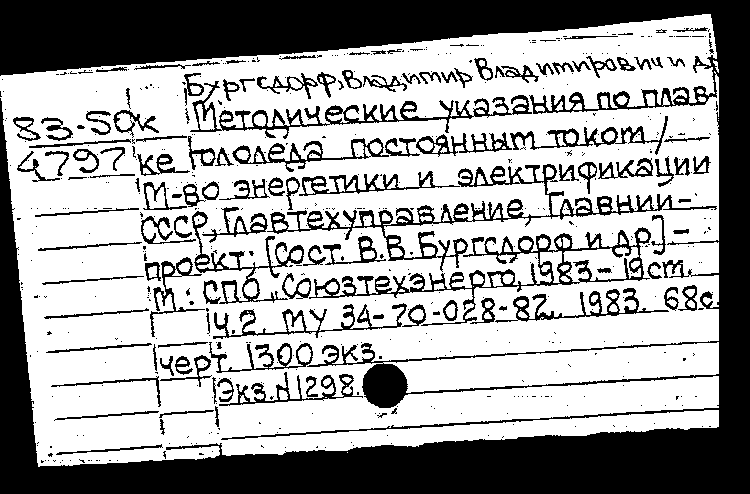 Бургсдорф, Владимир Владимирович и др
83-50к Методические указания по плав-
4797 ке гололёда постоянным током /
М-во энергетики и электрификации
СССР, Главтехуправление, Главнии-
проект; [Сост. В.В.Бургсдорф и др.].-
М.: СПО „Союзтехэнерго, 1983 - 19см.
Ч.2. МУ 34-70-028-82. 1983. 68с.
черт. 1300 экз.
Экз.N1298.